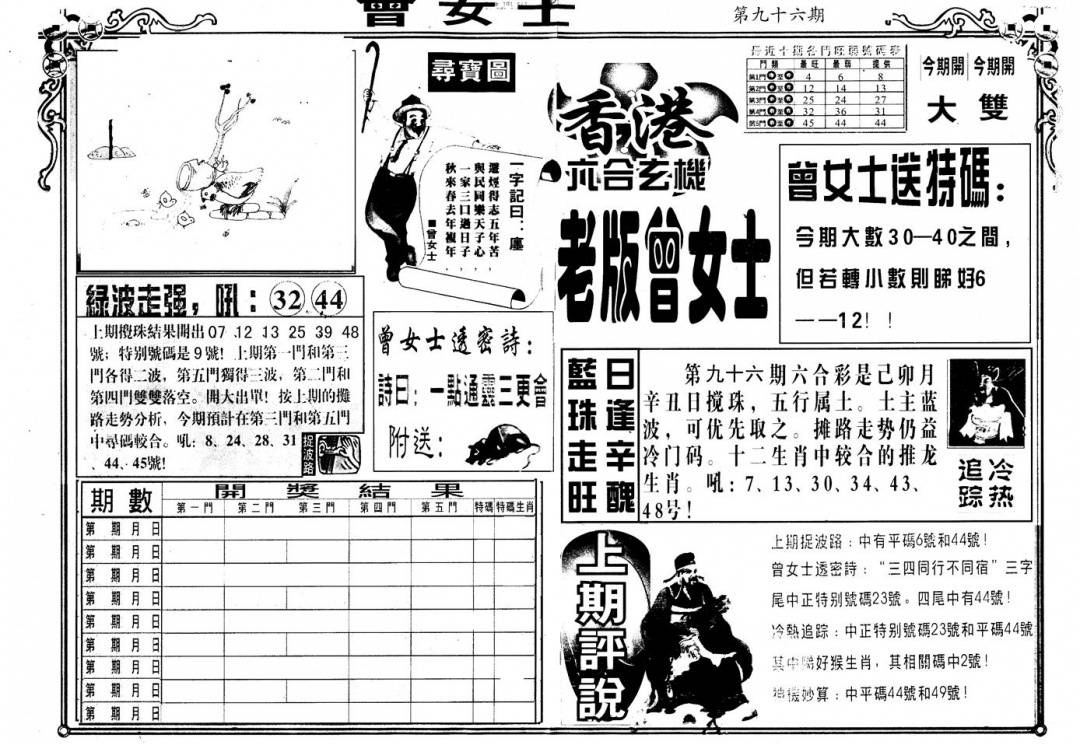 曾女士
第九十六期
尋寶圖
一字記曰：廛
還煙得志五年苦，
與民同樂天子心，
一家三口過日子，
秋來春去年複年
■曾女士
香港
六合玄機
老版曾女士
最近十期各門旺弱號碼參
門類 最旺 最弱 提供
第1門 至 4 6 8
第2門 至 12 14 13
第3門 至 25 24 27
第4門 至 32 36 31
第5門 至 45 44 44
今期開 今期開
大 雙
曾女士送特碼：
今期大數30—40之間，
但若轉小數則睇好6
——12！！
綠波走强，吼：32 44
上期攪珠結果開出07 12 13 25 39 48
號；特别號碼是9號！上期第一門和第三
門各得二波，第五門獨得三波，第二門和
第四門雙雙落空。開大出單！按上期的攤
路走勢分析，今期預計在第三門和第五門
中尋碼較合。吼：8、24、28、31
、44、45號！
捉波路
曾女士透密詩：
詩曰：一點通靈三更會
附送：
藍珠走旺
日逢辛醜
第九十六期六合彩是己卯月
辛丑日搅珠，五行属土。土主蓝
波，可优先取之。摊路走势仍益
冷门码。十二生肖中较合的推龙
生肖。吼：7、13、30、34、43、
48号！
冷热
追踪
期數 開獎結果
第一門 第二門 第三門 第四門 第五門 特碼 特碼生肖
第 期 月 日
第 期 月 日
第 期 月 日
第 期 月 日
第 期 月 日
第 期 月 日
第 期 月 日
第 期 月 日
第 期 月 日
上期評說
上期捉波路：中有平碼6號和44號！
曾女士透密詩：“三四同行不同宿”三字
尾中正特别號碼23號。四尾中有44號！
冷熱追踪：中正特别號碼23號和平碼44號
其中睇好猴生肖，其相關碼中2號！
地機妙算：中平碼44號和49號！